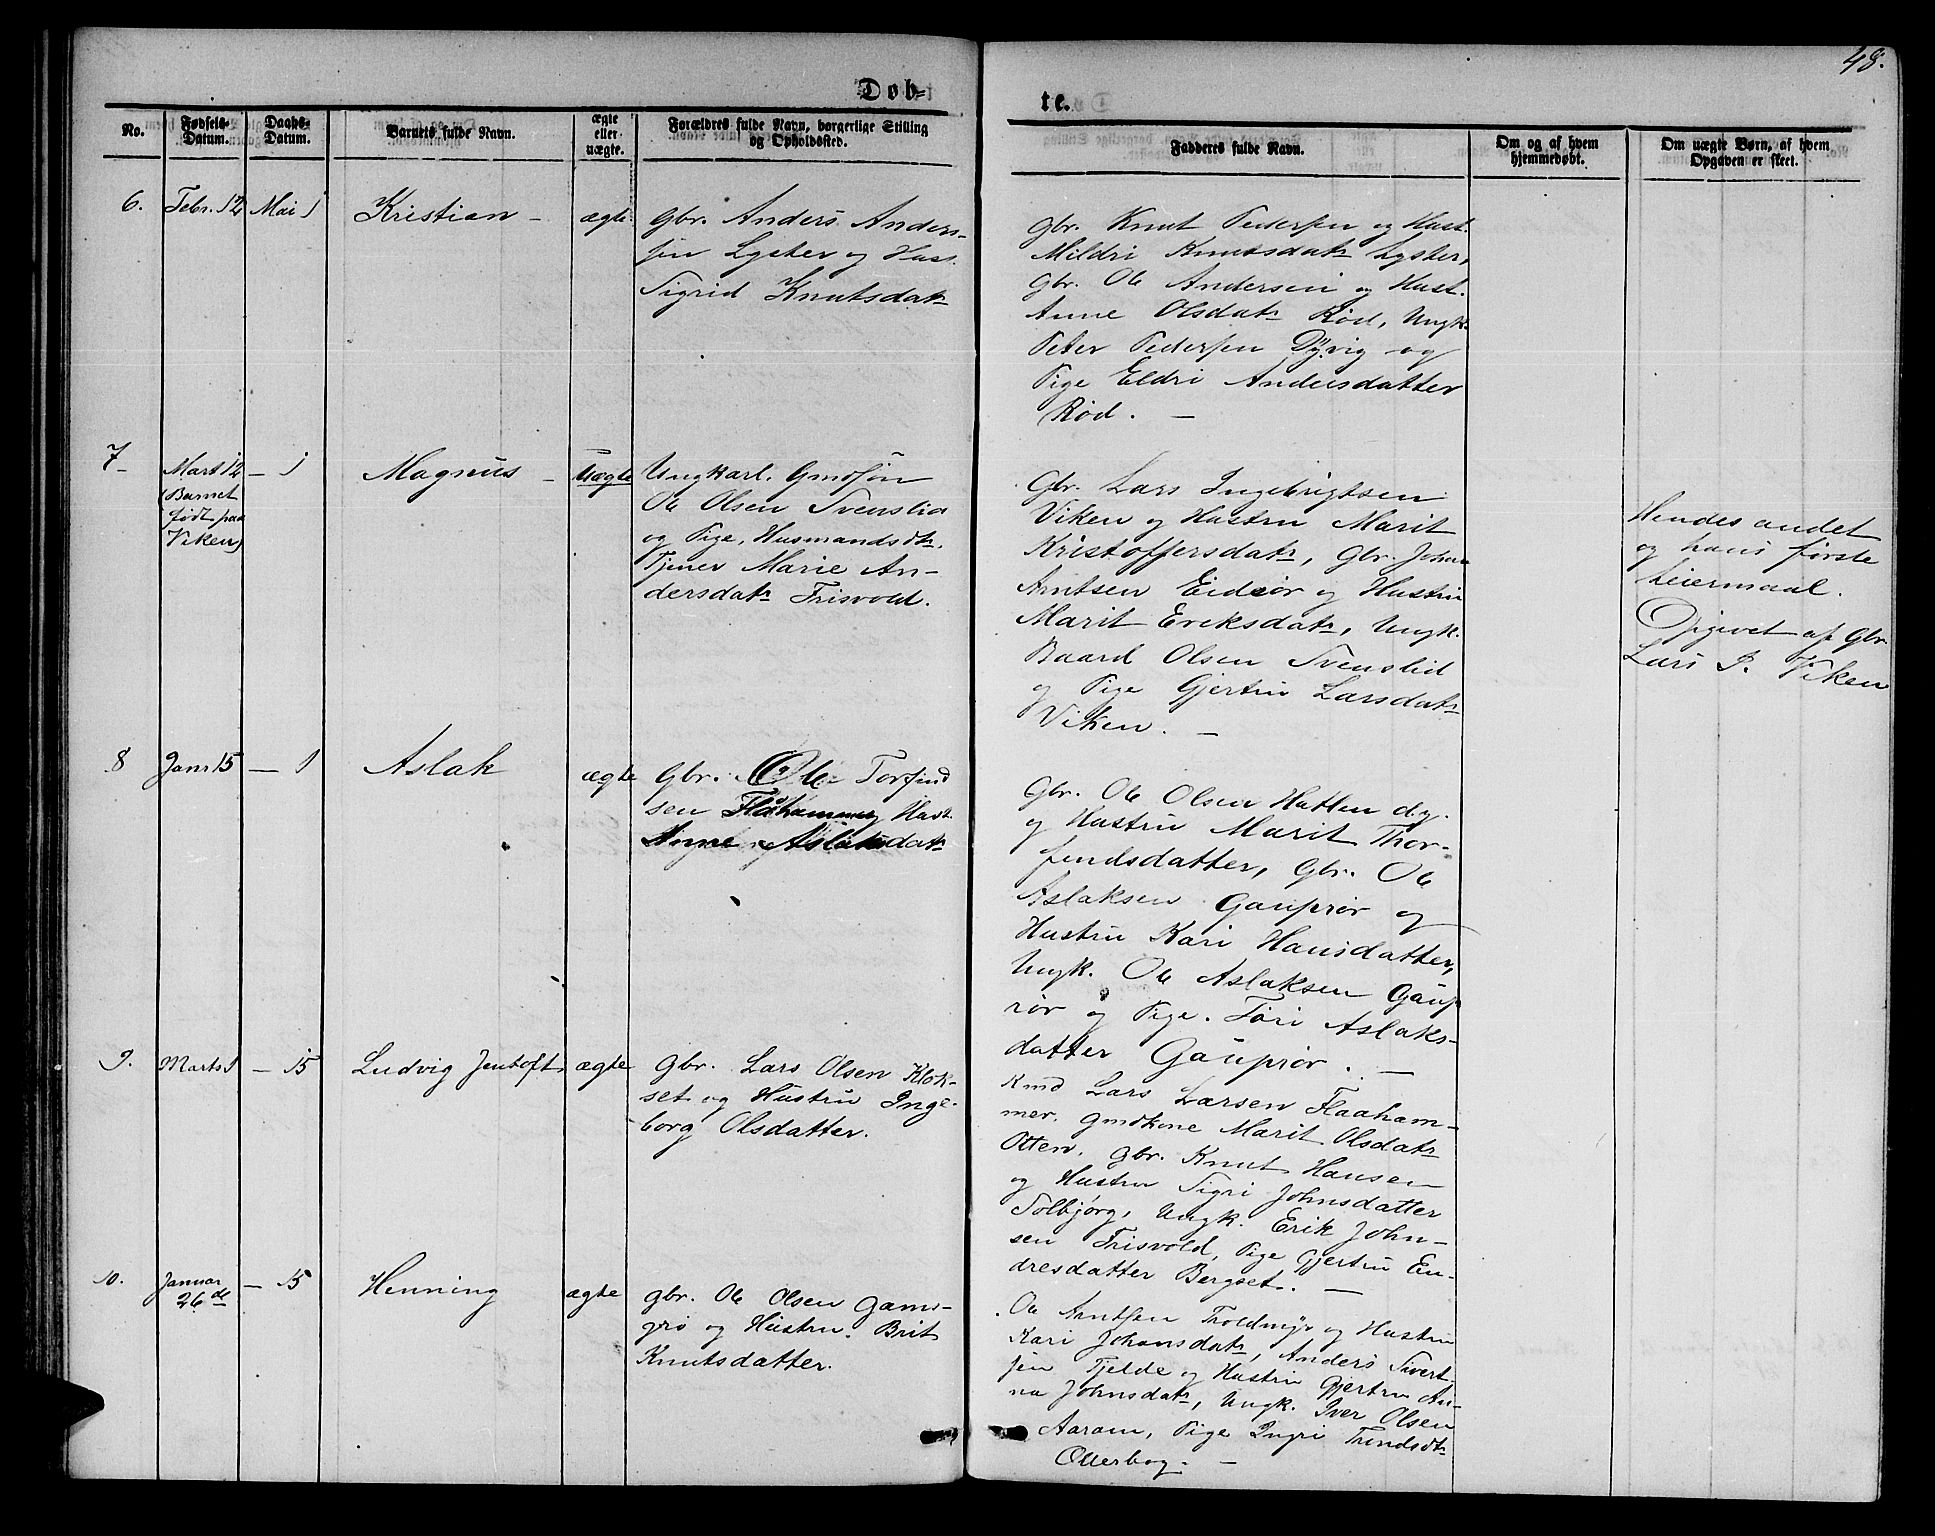 48.
Døb-
te.
No.
Fødsels-
Datum.
Daabs-
Datum.
Barnets fulde Navn.
ægte
eller
uægte.
Forældres fulde Navn, borgerlige Stilling
og Opholdssted.
Faddernes fulde Navn.
Om og af hvem
hjemmedøbt.
Om uægte Børn, af hvem
Opgaven er skeet.
6.
Febr. 12
Mai 1
Kristian –
ægte
Gbr. Anders Anders-
sen Lyster og Hust.
Sigrid Knutsdatr
Gbr. Knut Pedersen og Hust.
Mildri Knutsdatr Lyster,
Gbr. Ole Andersen og Hust.
Anne Olsdatr Rød, Ungk.
Peter Pedersen Dyvig og
Pige Eldri Andersdatter
Rød. –
7 –
Marts 12
(Barnet
født paa
Viken)
– 1
Magnus –
Uægte
Ungkarl. Gmdsøn
Ole Olsen Svenslid
og Pige, Husmandsdtr.
Tjener Marie An-
dersdatr Frisvold.
Gbr. Lars Ingebrigtsen
Viken og Hustru Marit
Kristoffersdatr, Gbr. John
Arntsen Eidsør og Hustru
Marit Eriksdatr, Ungk.
Baard Olsen Svenslid
og Pige Gjertru Larsdatr
Viken. –
Hendes andet
og hans første
Leiermaal.
Opgivet af Gbr.
Lars I. Viken
8
Janr 15
– 1
Aslak
ægte
Gbr. Ole Torfind
sen Flåhammer og Hust.
Anne Aslaksdatr
Gbr. Ole Olsen Hatlen d.y.
og Hustru Marit Thor-
findsdatter, Gbr. Ole
Aslaksen Gauprør og
Hustru Kari Hansdatter,
Ungk. Ole Aslaksen Gaup
rør og Pige. Turi Aslaks-
datter Gauprør. –
9.
Marts 1
– 15
Ludvig Jentoft
ægte
Gbr. Lars Olsen Klok-
set og Hustru Inge-
borg Olsdatter.
Kmd Lars Larsen Flaaham-
mer, Gmdkone Marit Olsdatr
Otten, Gbr. Knut Hansen
og Hustru Sigri Johnsdatter
Solbjørg, Ungk. Erik John-
sen Frisvold, Pige Gjertru En-
dresdatter Bergset. –
10.
Januar
26de
– 15
Henning
ægte
Gbr. Ole Olsen Gams-
grø og Hustru. Brit
Knutsdatter.
Ole Arntsen Tholdmyr og Hustru
Kari Johansdatr, Anders Sivert
sen Tjelde og Hustru Gjertru An-
na Johnsdatr, Ungk. Iver Olsen
Aaram, Pige Ingri Trondsdtr
Ollerbog. –